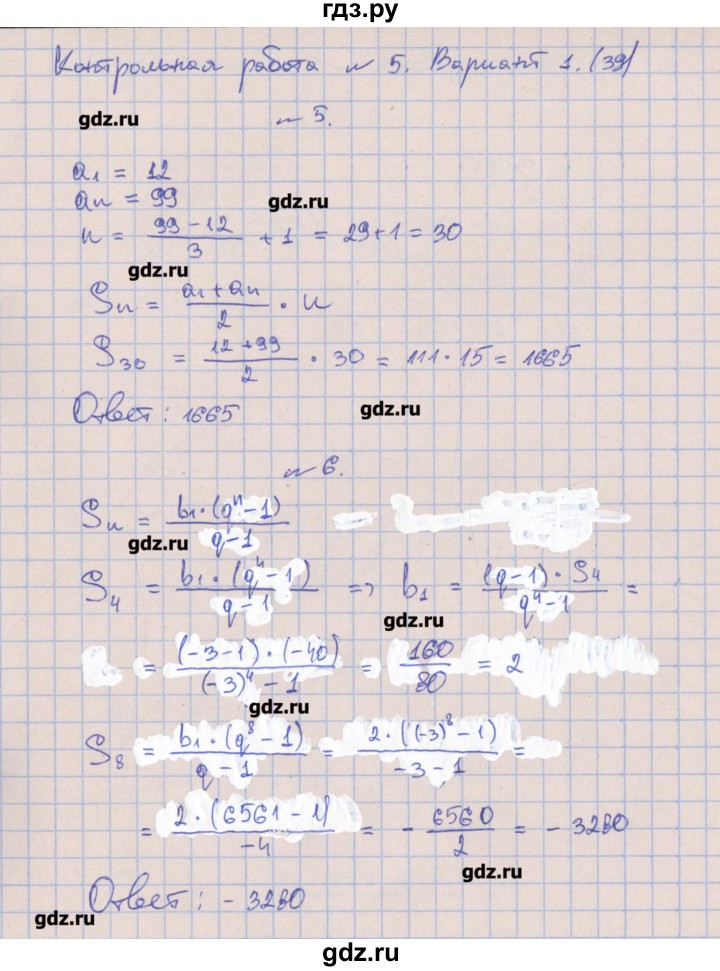 гдз.ру
Контрольная работа № 5. Вариант 1. (39)
gdz.ru
№ 5.
a₁ = 12
aₙ = 99
gdz.ru
n = (99 - 12)/3 + 1 = 29 + 1 = 30
gdz.ru
Sₙ = (a₁ + aₙ)/2 · n
S₃₀ = (12 + 99)/2 · 30 = 111 · 15 = 1665
Ответ: 1665
gdz.ru
№ 6.
Sₙ = (b₁ · (qⁿ - 1))/(q - 1)
gdz.ru
S₄ = (b₁ · (q⁴ - 1))/(q - 1) => b₁ = ((q - 1) · S₄)/(q⁴ - 1) =
gdz.ru
= ((-3 - 1) · (-40))/((-3)⁴ - 1) = 160/80 = 2
gdz.ru
S₈ = (b₁ · (q⁸ - 1))/(q - 1) = (2 · ((-3)⁸ - 1))/(-3 - 1) =
= (2 · (6561 - 1))/(-4) = - 6560/2 = - 3280
gdz.ru
Ответ: - 3280
gdz.ru
gdz.ru